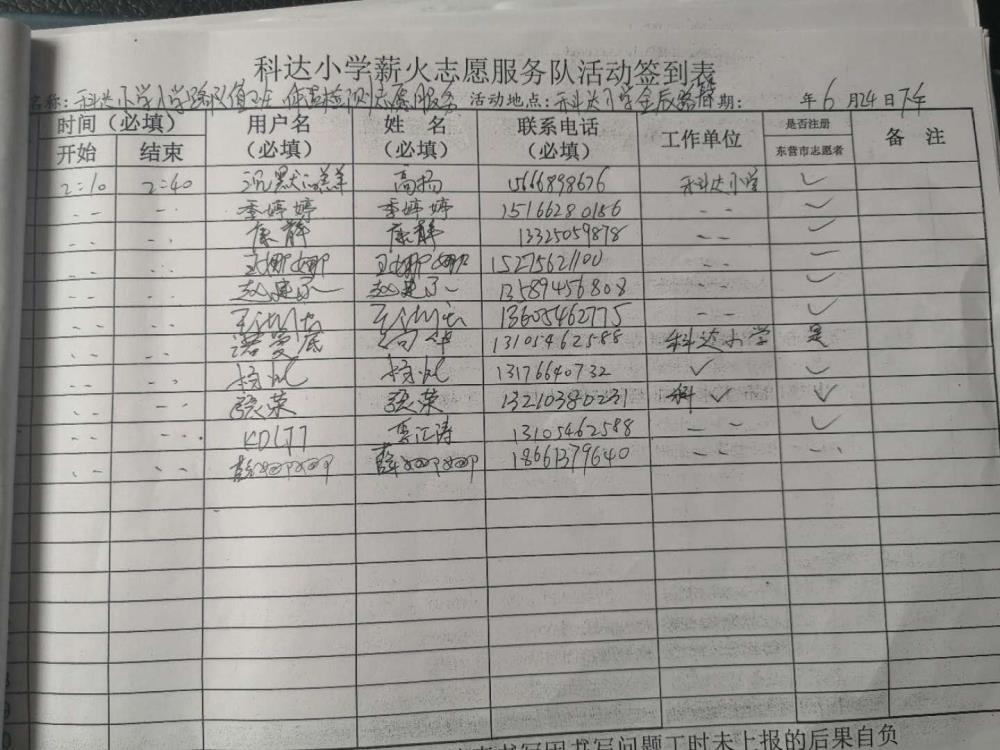 科达小学薪火志愿服务队活动签到表
名称：科达小学入学路队值班 体温检测志愿服务 活动地点：科达小学 期： 年6月24日下午
时间（必填） 用户名（必填） 姓 名（必填） 联系电话（必填） 工作单位 是否注册东营市志愿者 备 注
开始 结束
2:10 2:40 沉默 高杨 15666898676 科达小学 ✓
季婷婷 季婷婷 15166280186 ✓
康静 康静 13325059878 ✓
王娜娜 王娜娜 15275621100
13589456808 ✓
13605462775 ✓
13105462588 科达小学 是
杨 杨 13176640732 ✓ ✓
张荣 张荣 13210380231 科 ✓ ✓
KD 贾江涛 13105462588 ✓
薛 18661379640
书写因书写问题工时未上报的后果自负